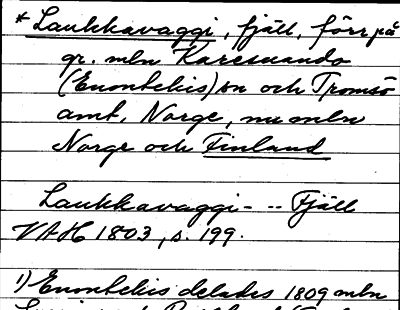 * Laukkavaggi, fjäll, förr på
gr. mln Karesuando
(Enontekis)sn och Tromsö
amt, Norge, nu mln
Norge och Finland
Laukkavaggi - -- Fjäll
VAH 1803, s. 199.
1) Enontekis delades 1809 mln